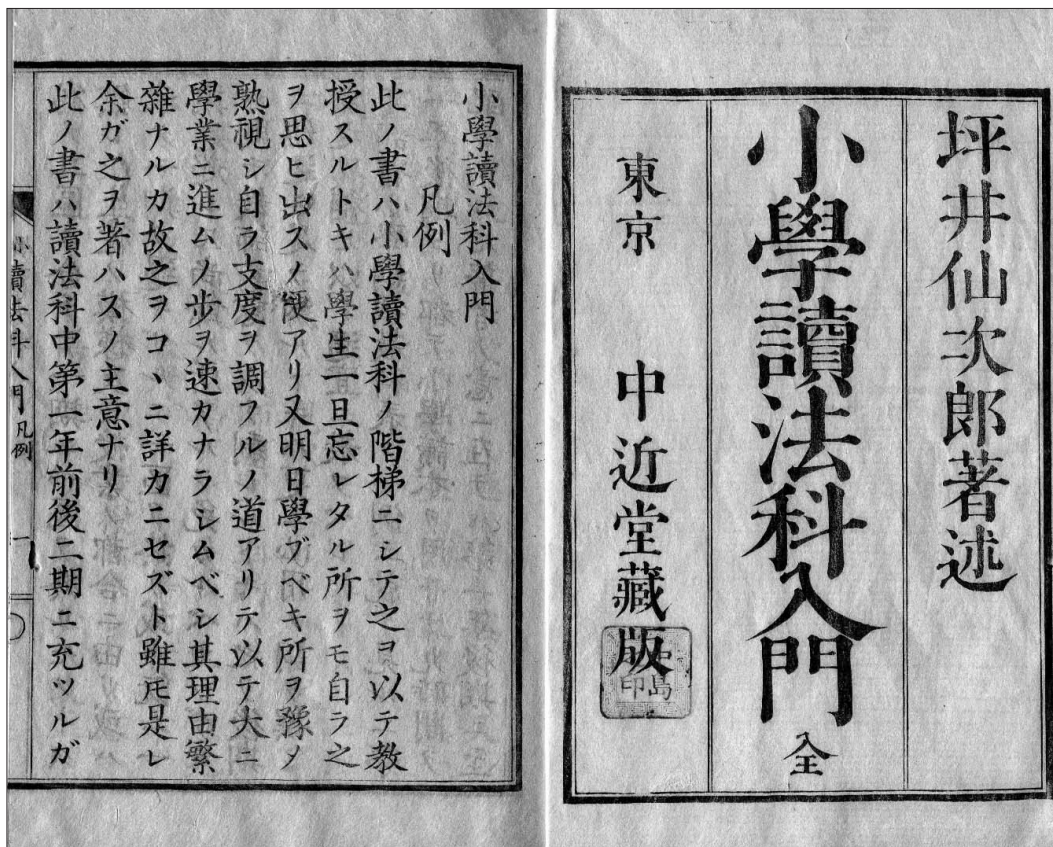 坪井仙次郎著述
小學讀法科入門 全
東京 中近堂藏版
小學讀法科入門
凡例
此ノ書ハ小學讀法科ノ階梯ニシテ之ヲ以テ教
授スルトキハ學生一旦忘レタル所ヲモ自ラ之
ヲ思ヒ出スノ便アリ又明日學ブベキ所ヲ豫ノ
熟視シ自ラ支度ヲ調フルノ道アリテ以テ大ニ
學業ニ進ムノ歩ヲ速カナラシムベシ其理由繁
雜ナルカ故之ヲコヽニ詳カニセズト雖𪜈是レ
余ガ之ヲ著ハスノ主意ナリ
此ノ書ハ讀法科中第一年前後二期ニ充ツルガ
小讀法科入門 凡例
一